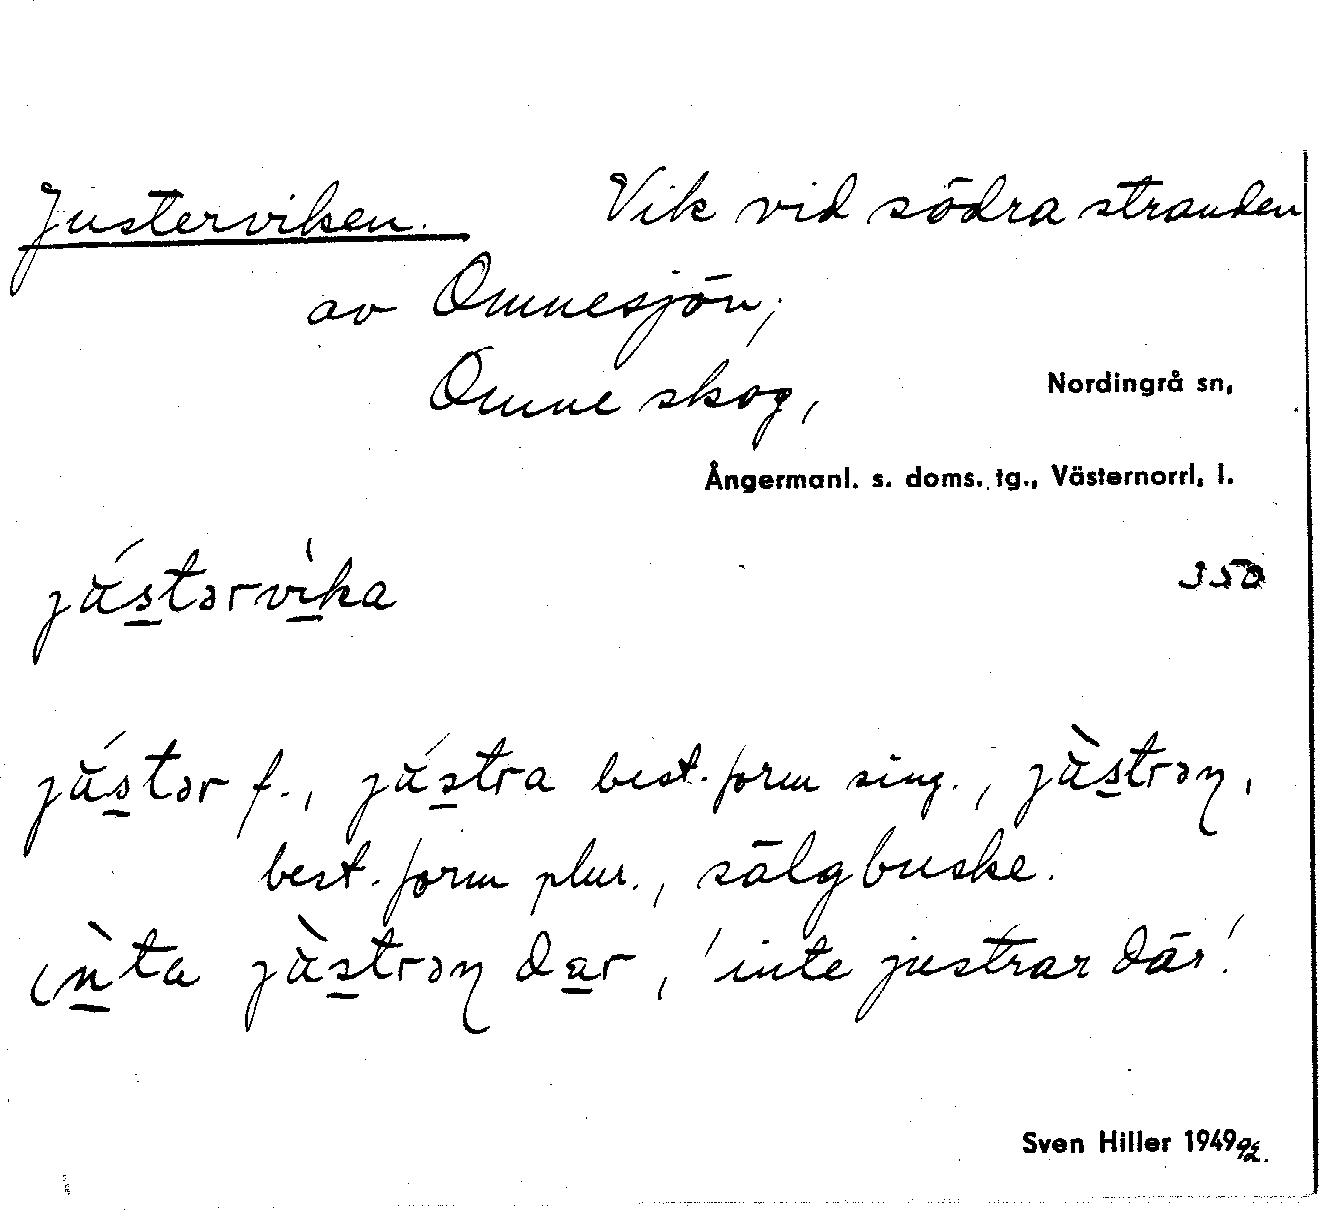 Justerviken. Vik vid södra stranden
av Omnesjön,
Omne skog, Nordingrå sn,
Ångermanl. s. doms. tg., Västernorrl. l.
jústərvìka 350
jústər f., jústra best. form sing., jùstrəɳ,
best. form plur., sälgbuske.
ìnta jùstrəɳ dar, 'inte justrar där'.
Sven Hiller 1949